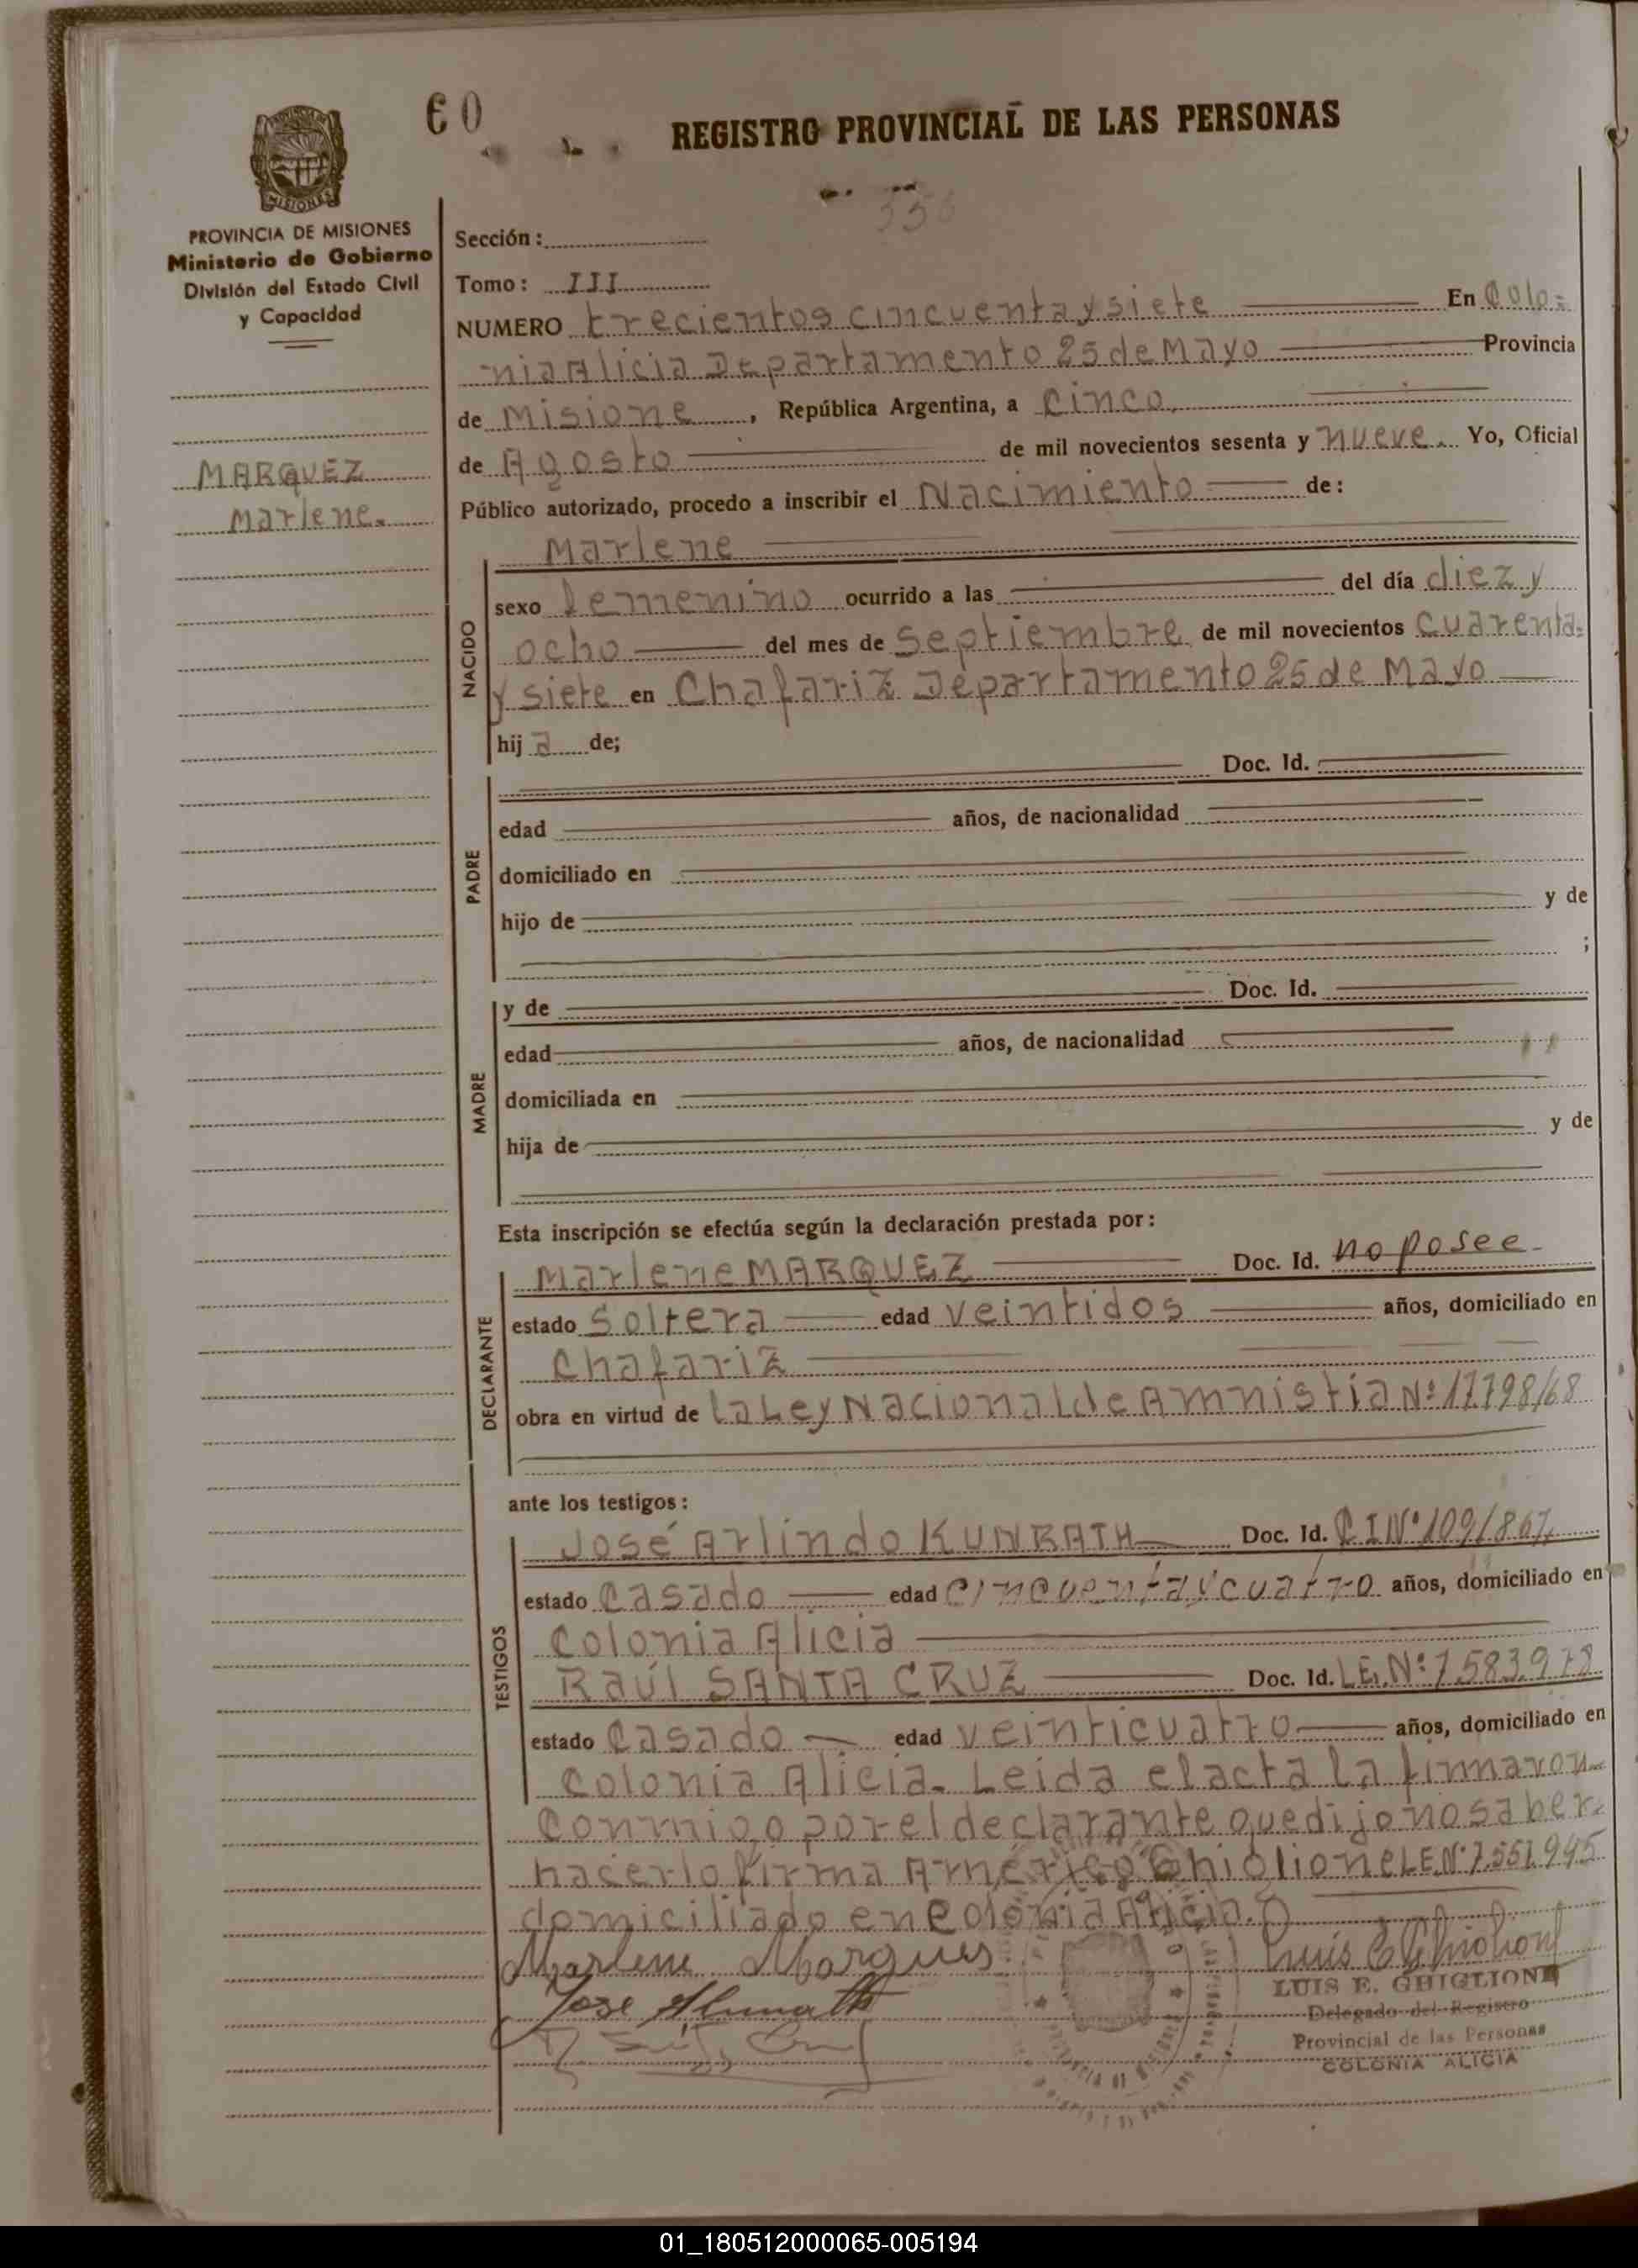 60
REGISTRO PROVINCIAL DE LAS PERSONAS
PROVINCIA DE MISIONES
Ministerio de Gobierno
División del Estado Civil
y Capacidad
MARQUEZ
Marlene.
Sección:
Tomo: III
NUMERO trecientos cincuenta y siete En Colo=
nia Alicia Departamento 25 de Mayo Provincia
de Misione, República Argentina, a Cinco,
de Agosto de mil novecientos sesenta y nueve. Yo, Oficial
Público autorizado, procedo a inscribir el Nacimiento de:
Marlene
NACIDO
sexo femenino ocurrido a las del día diez y
ocho del mes de Septiembre de mil novecientos cuarenta=
y siete en Chafariz Departamento 25 de Mayo
hij a de;
PADRE
Doc. Id.
edad años, de nacionalidad
domiciliado en
hijo de y de
;
MADRE
y de Doc. Id.
edad años, de nacionalidad
domiciliada en
hija de y de
Esta inscripción se efectúa según la declaración prestada por:
DECLARANTE
Marlene MARQUEZ Doc. Id. no posee
estado Soltera edad veintidos años, domiciliado en
Chafariz
obra en virtud de la Ley Nacional de Amnistia Nº 17.798/68
ante los testigos:
TESTIGOS
José Arlindo KUNRATH Doc. Id. C I Nº 109/867,
estado Casado edad cincuenta y cuatro años, domiciliado en
Colonia Alicia
Raúl SANTA CRUZ Doc. Id. LE. Nº 7583.978
estado Casado edad veinticuatro años, domiciliado en
Colonia Alicia. Leida el acta la firmaron
conmigo por el declarante que dijo no saber
hacerlo firma Américo Ghiglione LE. Nº 7.551.945
domiciliado en Colonia Alicia.
Marlene Marques
Luis E Ghiglione
Jose A Kunrath
LUIS E. GHIGLIONE
Delegado del Registro
Provincial de las Personas
COLONIA ALICIA
01_180512000065-005194